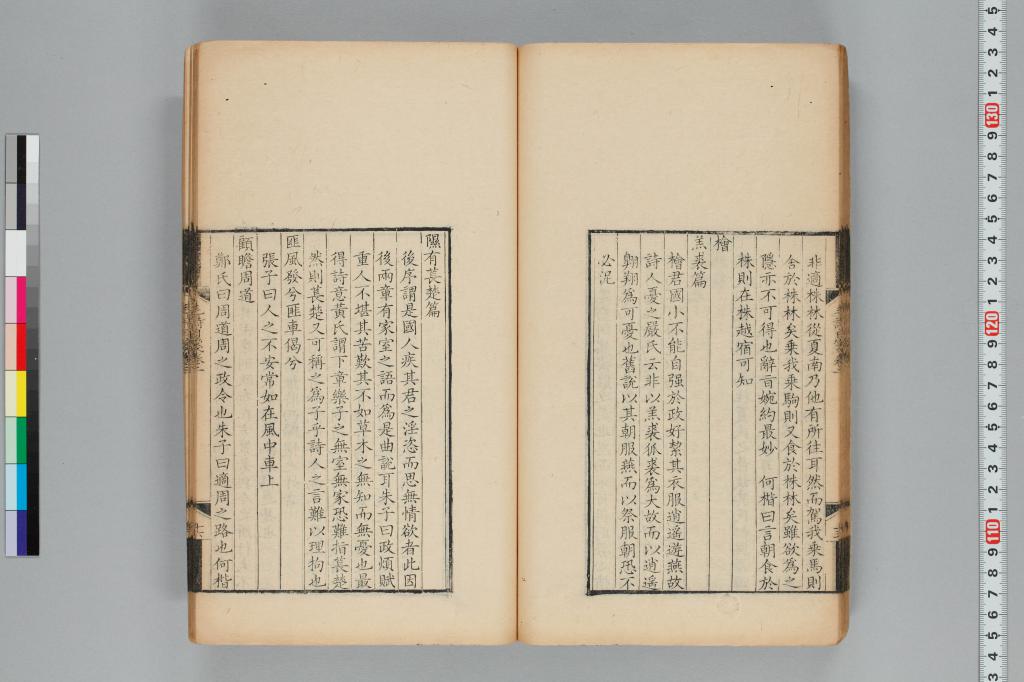 非適株林從夏南乃他有所往耳然而駕我乘馬則
舍於株林矣乘我乘駒則又食於株林矣雖欲爲之
隱亦不可得也辭亩婉約最妙 何楷曰言朝食於
株則在株越宿可知
檜
羔裘篇
檜君國小不能自强於政好絜其衣服逍遥遊燕故
詩人憂之嚴氏云非以羔裘狐裘爲大故而以逍遥
翱翔爲可憂也舊說以其朝服燕而以祭服朝恐不
必泥
隰有萇楚篇
後序謂是國人疾其君之淫恣而思無情欲者此因
後兩章有家室之語而爲是曲說耳朱子曰政煩賦
重人不堪其苦歎其不如草木之無知而無憂也最
得詩意黃氏謂下章樂子之無室無家恐難指萇楚
然則萇楚又可稱之爲子乎詩人之言難以理拘也
匪風發兮匪車偈兮
張子曰人之不安常如在風中車上
顧瞻周道
鄭氏曰周道周之政令也朱子曰適周之路也何楷